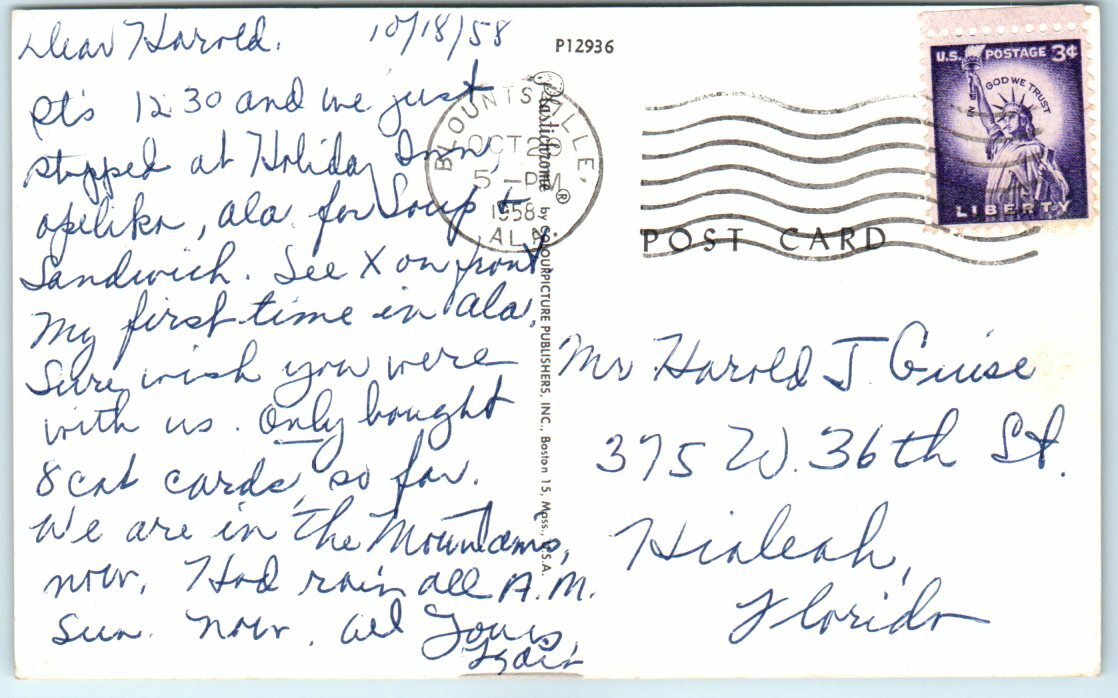 Dear Harold. 10/18/58
It's 12 30 and we just
stopped at Holiday Inn,
opelika, ala. for Soup &
Sandwich. See X on front
My first time in ala.
Sure wish you were
with us. Only bought
8 cat cards, so far.
We are in the Mountains,
now. Had rain all A.M.
Sun. now. All Yours,
P12936
Plastichrome® by COLOURPICTURE PUBLISHERS, INC., Boston 15, Mass., U.S.A.
BLOUNTSVILLE,
OCT 20
5 - PM
1958
ALA.
U.S. POSTAGE 3¢
IN GOD WE TRUST
LIBERTY
POST CARD
Mr. Harold J. Guise
375 W. 36th St.
Hialeah,
Florida